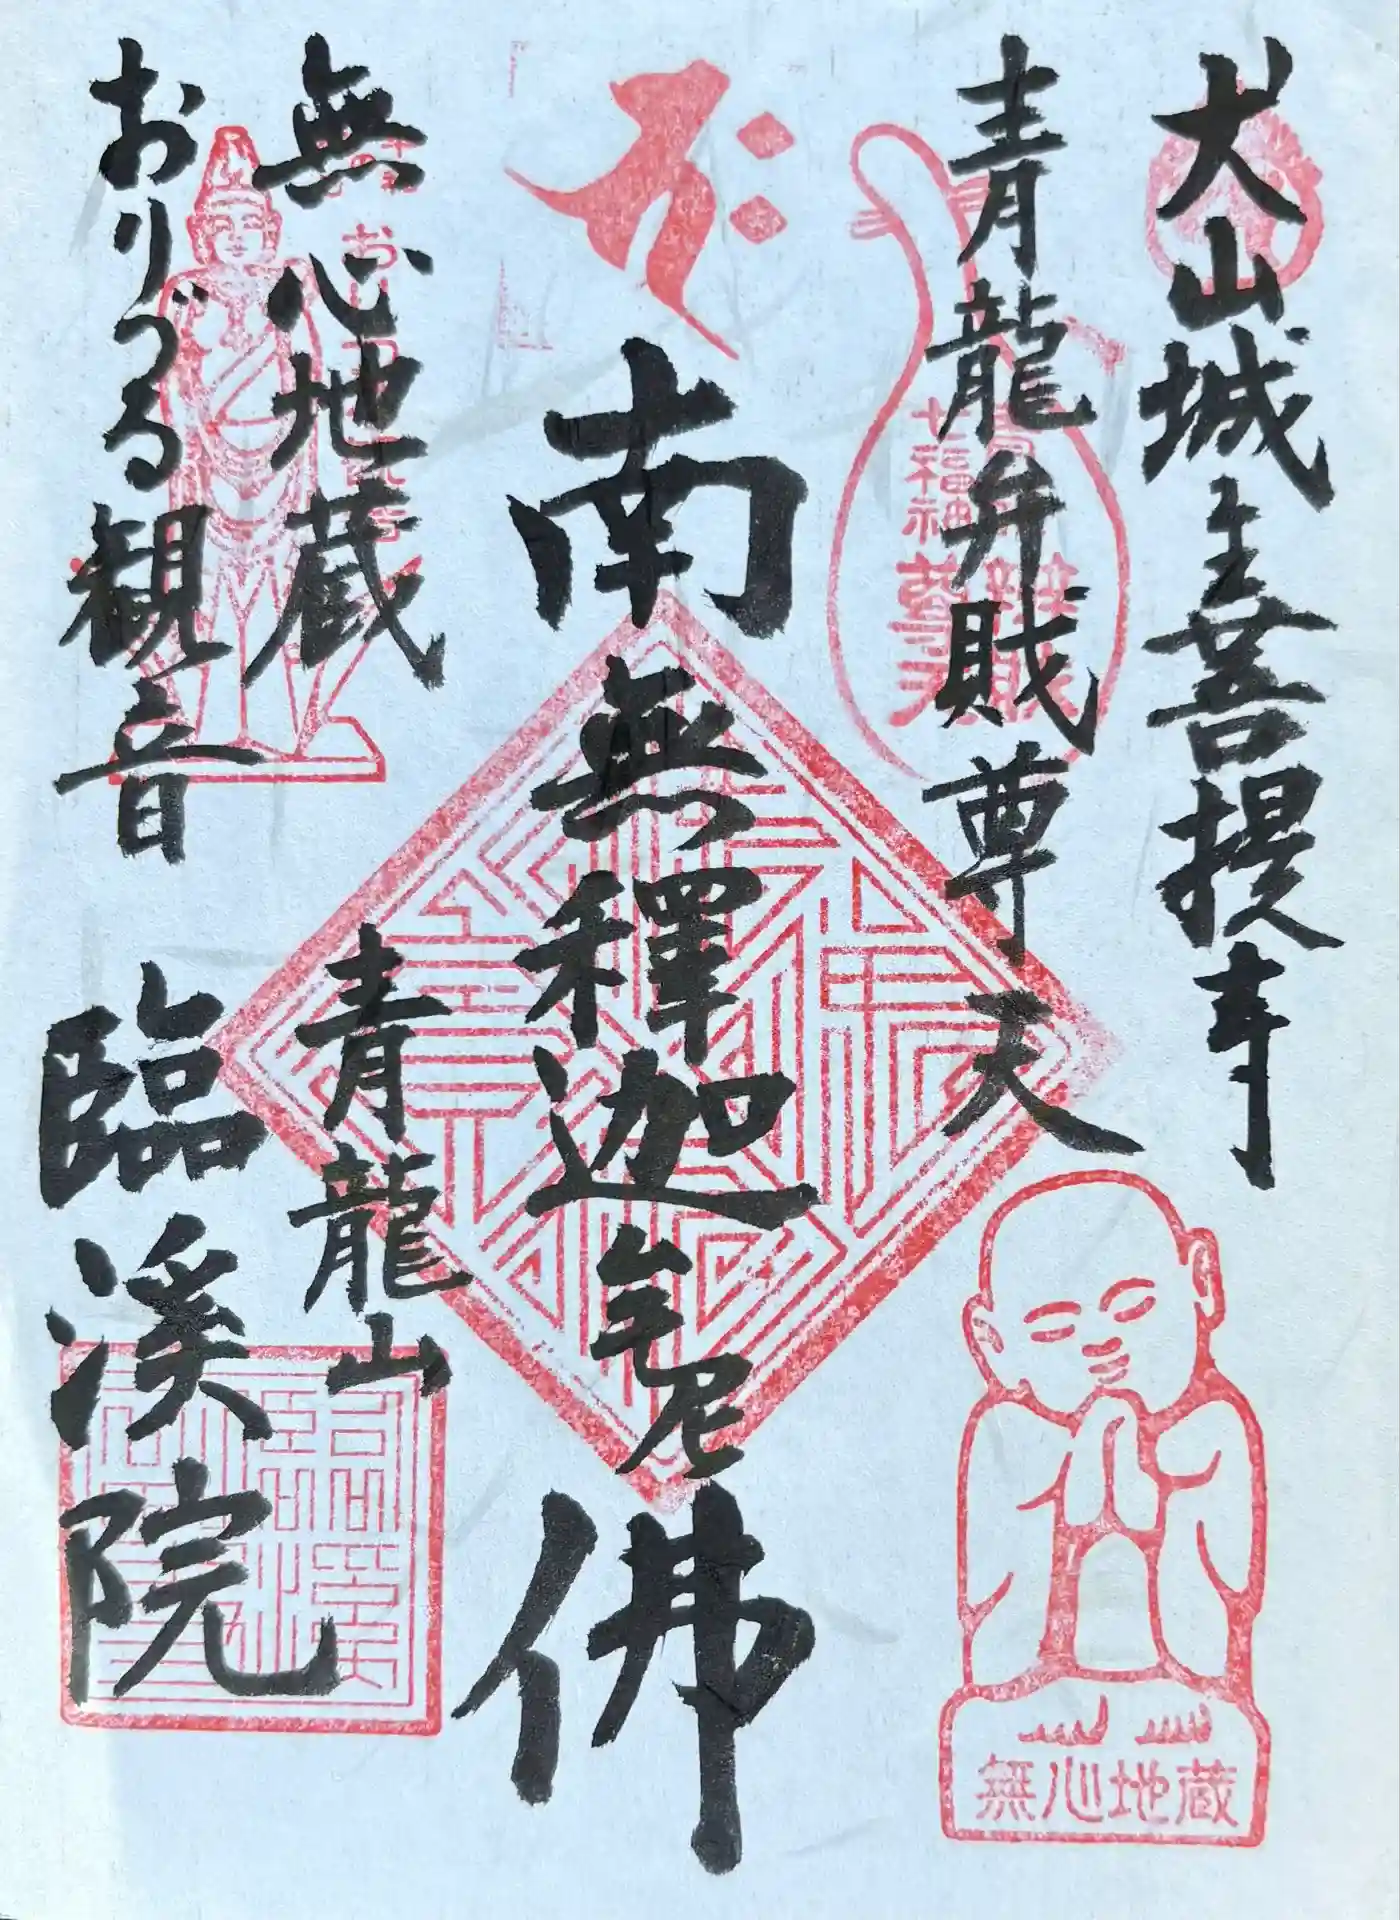 犬山城主菩提寺
青龍弁財尊天
南無釋迦牟尼佛
無心地蔵
おりづる観音
青龍山
臨溪院
七福神
無心地蔵